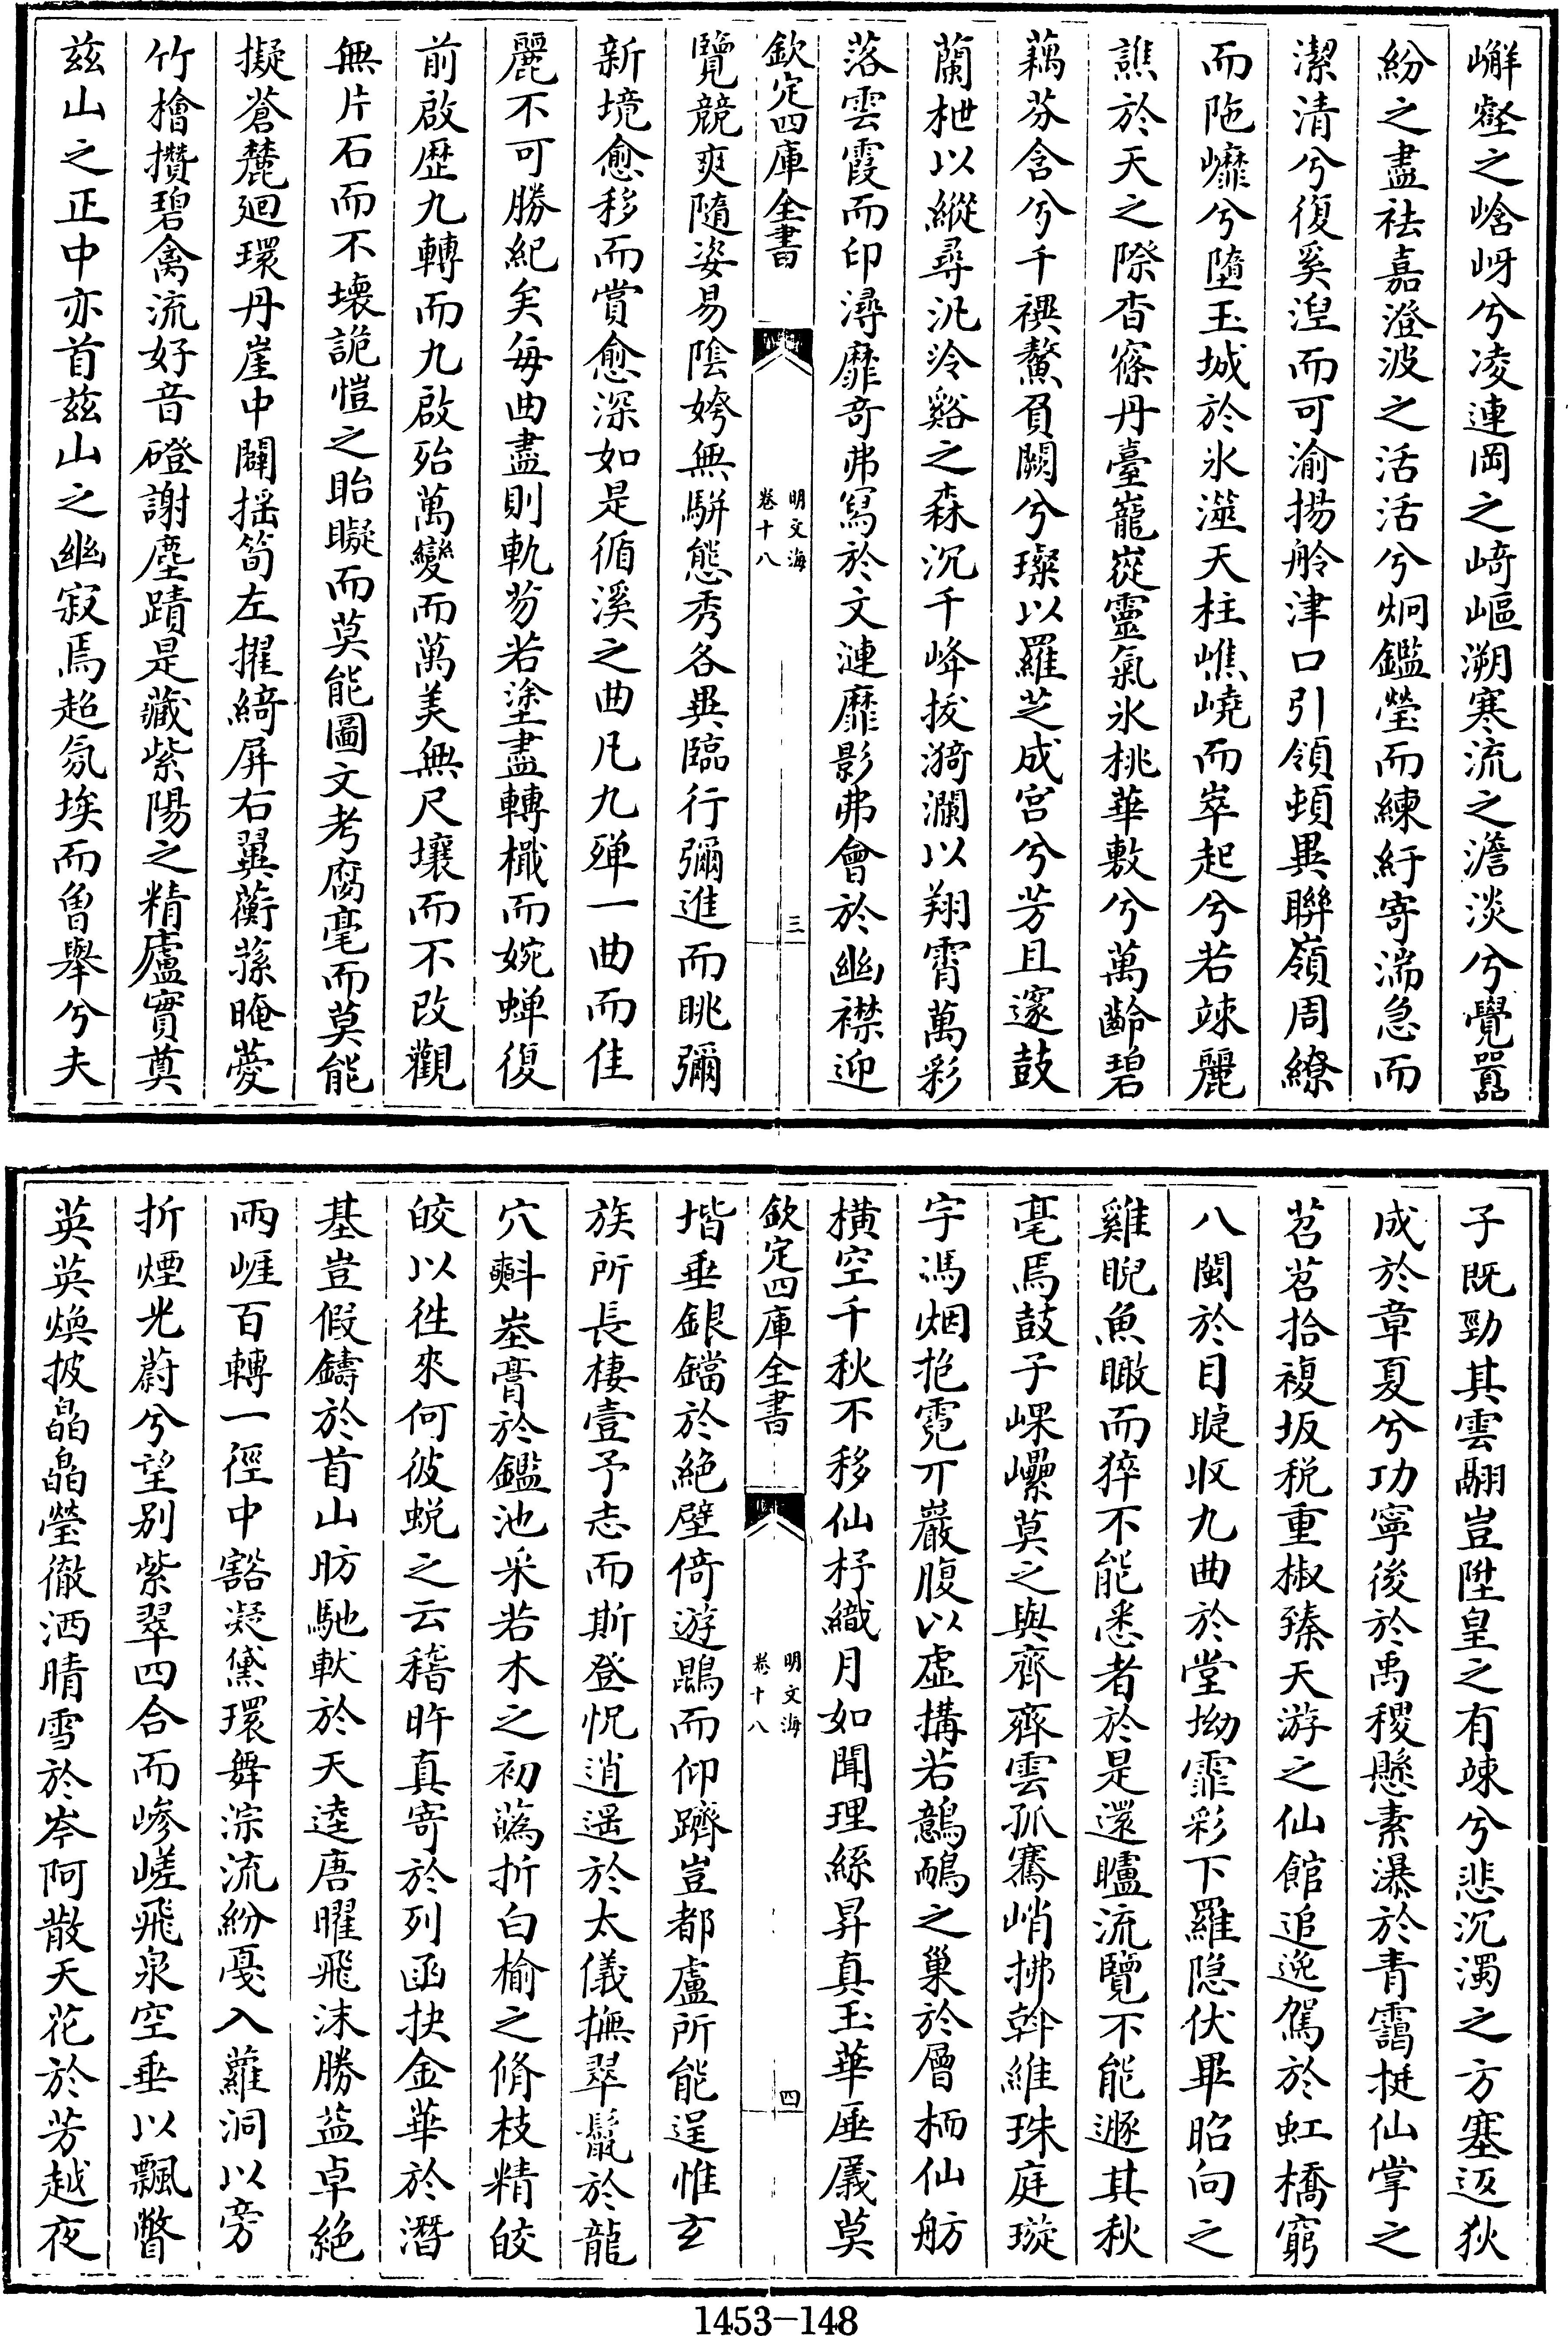 嶰壑之㟏岈兮凌連岡之﨑嶇溯寒流之澹淡兮覺囂
紛之盡祛嘉澄波之活活兮炯鑑瑩而練紆寄湍急而
潔清兮復奚湼而可渝揚舲津口引領頓異聯嶺周繚
而陁㠧兮墮玉城於氷澨天柱嶕嶢而崒起兮若竦麗
譙於天之際杳窱丹臺巃嵸靈氣氷桃華敷兮萬齡碧
藕芬含兮千禩鰲負闕兮璨以羅芝成宫兮芳且邃鼓
蘭枻以縱尋汎泠谿之森沉千峰拔漪瀾以翔霄萬彩
落雲霞而印潯靡奇弗冩於文漣靡影弗會於幽襟迎
欽定四庫全書
明文海
卷十八
三
覽競爽隨姿易陰姱無駢態秀各異臨行彌進而眺彌
新境愈移而賞愈深如是循溪之曲凡九殫一曲而佳
麗不可勝紀矣每曲盡則軌芴若塗盡轉檥而婉蟬復
前啟歴九轉而九啟殆萬變而萬美無尺壤而不改觀
無片石而不壊詭愷之眙矃而莫能圖文考腐毫而莫能
擬蒼麓廻環丹崖中闢揺筍左擢綺屏右翼蘅蓀晻薆
竹檜攢碧禽流好音磴謝塵蹟是藏紫陽之精廬實奠
兹山之正中亦首兹山之幽寂焉超氛埃而曾舉兮夫
子既勁其雲翮豈陞皇之有竦兮悲沉濁之方塞返狄
成於章夏兮功寧後於禹稷懸素瀑於青靄挺仙掌之
苕苕拾複坂税重椒臻天游之仙館追逸駕於虹橋窮
八閩於目睫收九曲於堂坳霏彩下羅隐伏畢昭向之
雞睨魚瞰而猝不能悉者於是還矑流覽不能遯其秋
毫焉鼓子崐㠥莫之與齊齊雲孤騫峭拂斡維珠庭璇
宇馮烟抱霓丌巖腹以虚搆若鷾鴯之巢於層栭仙舫
横空千秋不移仙杼織月如聞理絲昇真玉華㕒㕒莫
欽定四庫全書
明文海
卷十八
四
堦垂銀鐺於絶壁倚游鵾而仰躋豈都盧所能逞惟玄
族所長棲壹予志而斯登怳逍遥於太儀撫翠鬛於龍
穴㪺崟膏於鑑池采若木之初蘤折白榆之脩枝精皎
皎以徃來何彼蜕之云稽旿真寄於列函抉金華於潛
基豈假鑄於首山肪馳軑於天逵唐曜飛沫勝葢卓絶
兩崕百轉一徑中豁凝黛環舞淙流紛戞入蘿洞以旁
折煙光蔚兮望别紫翠四合而嵾嵯飛泉空垂以飄瞥
英英煥披皛皛瑩徹洒晴雪於岑阿散天花於芳越夜
1453-148